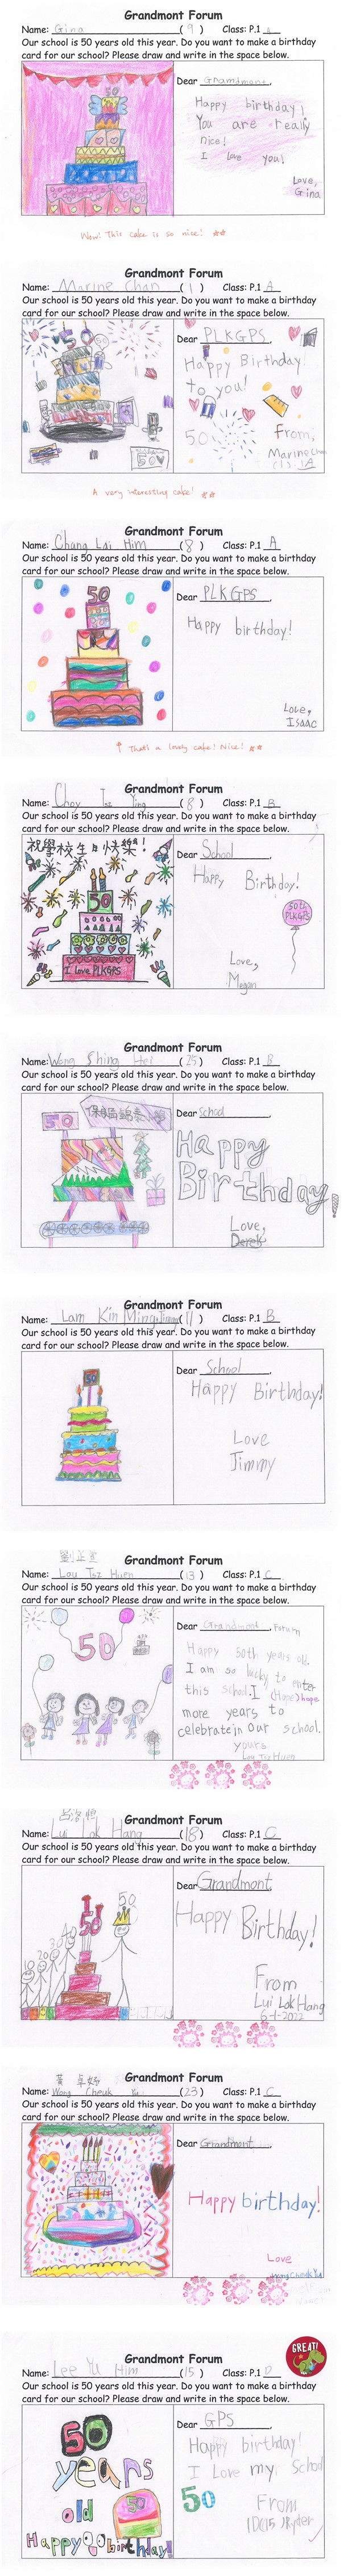 Grandmont Forum
Name: Gina (9) Class: P.1 A
Our school is 50 years old this year. Do you want to make a birthday
card for our school? Please draw and write in the space below.
50
Dear Grandmont,
Happy birthday!
You are really
nice!
I love you!
Love,
Gina
Wow! This cake is so nice!
Grandmont Forum
Name: Marine Chan (1) Class: P.1 A
Our school is 50 years old this year. Do you want to make a birthday
card for our school? Please draw and write in the space below.
50
Dear PLKGPS,
Happy Birthday
to you!
50
From,
Marine Chan
(1) 1A
A very interesting cake!
Grandmont Forum
Name: Chung Lai Him (8) Class: P.1 A
Our school is 50 years old this year. Do you want to make a birthday
card for our school? Please draw and write in the space below.
50
Dear PLKGPS,
Happy birthday!
Love,
Isaac
That's a lovely cake! Nice!
Grandmont Forum
Name: Choy Tsz Ying (8) Class: P.1 B
Our school is 50 years old this year. Do you want to make a birthday
card for our school? Please draw and write in the space below.
祝學校生日快樂!
50
I love PLKGPS
Dear School,
Happy Birthday!
50th
PLKGPS
Love,
Megan
Grandmont Forum
Name: Wong Shing Hei (25) Class: P.1 B
Our school is 50 years old this year. Do you want to make a birthday
card for our school? Please draw and write in the space below.
50
Dear School,
Happy
Birthday!
Love,
Derek
Grandmont Forum
Name: Lam Kin Ming Jimmy (11) Class: P.1 B
Our school is 50 years old this year. Do you want to make a birthday
card for our school? Please draw and write in the space below.
50
Dear School,
Happy Birthday!
Love
Jimmy
Grandmont Forum
Name: Lau Tsz Huen (13) Class: P.1 C
Our school is 50 years old this year. Do you want to make a birthday
card for our school? Please draw and write in the space below.
50
Dear Grandmont Forum,
Happy 50th years old
I am so lucky to enter
this school. I (Hope) hope
more years to
celebrate in our school.
yours
Lau Tsz Huen
Grandmont Forum
Name: Lui Lok Hang (18) Class: P.1 C
Our school is 50 years old this year. Do you want to make a birthday
card for our school? Please draw and write in the space below.
10 20 30 40 50
50
Dear Grandmont,
Happy Birthday!
From
Lui Lok Hang
6-1-2022
Grandmont Forum
黃卓妤
Name: Wong Cheuk Yu (23) Class: P.1 C
Our school is 50 years old this year. Do you want to make a birthday
card for our school? Please draw and write in the space below.
Dear Grandmont,
Happy birthday!
Love
Wong Cheuk Yu
GREAT!
Grandmont Forum
Name: Lee Yu Him (15) Class: P.1 D
Our school is 50 years old this year. Do you want to make a birthday
card for our school? Please draw and write in the space below.
50
years
old
50
Happy birthday!
Dear GPS,
Happy birthday!
I Love my School
50
From
1D(15) Ryder